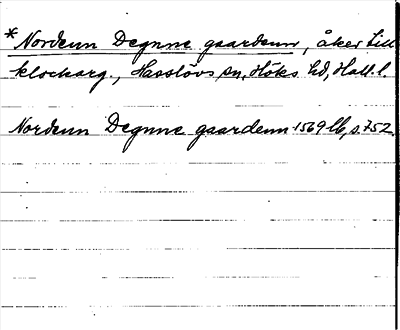 * Nordenn Degnne gaardenn, åker till
klockarg., Hasslövs sn, Höks hd, Hall. l.
Nordenn Degnne gaardenn 1569 lb, s. 752.